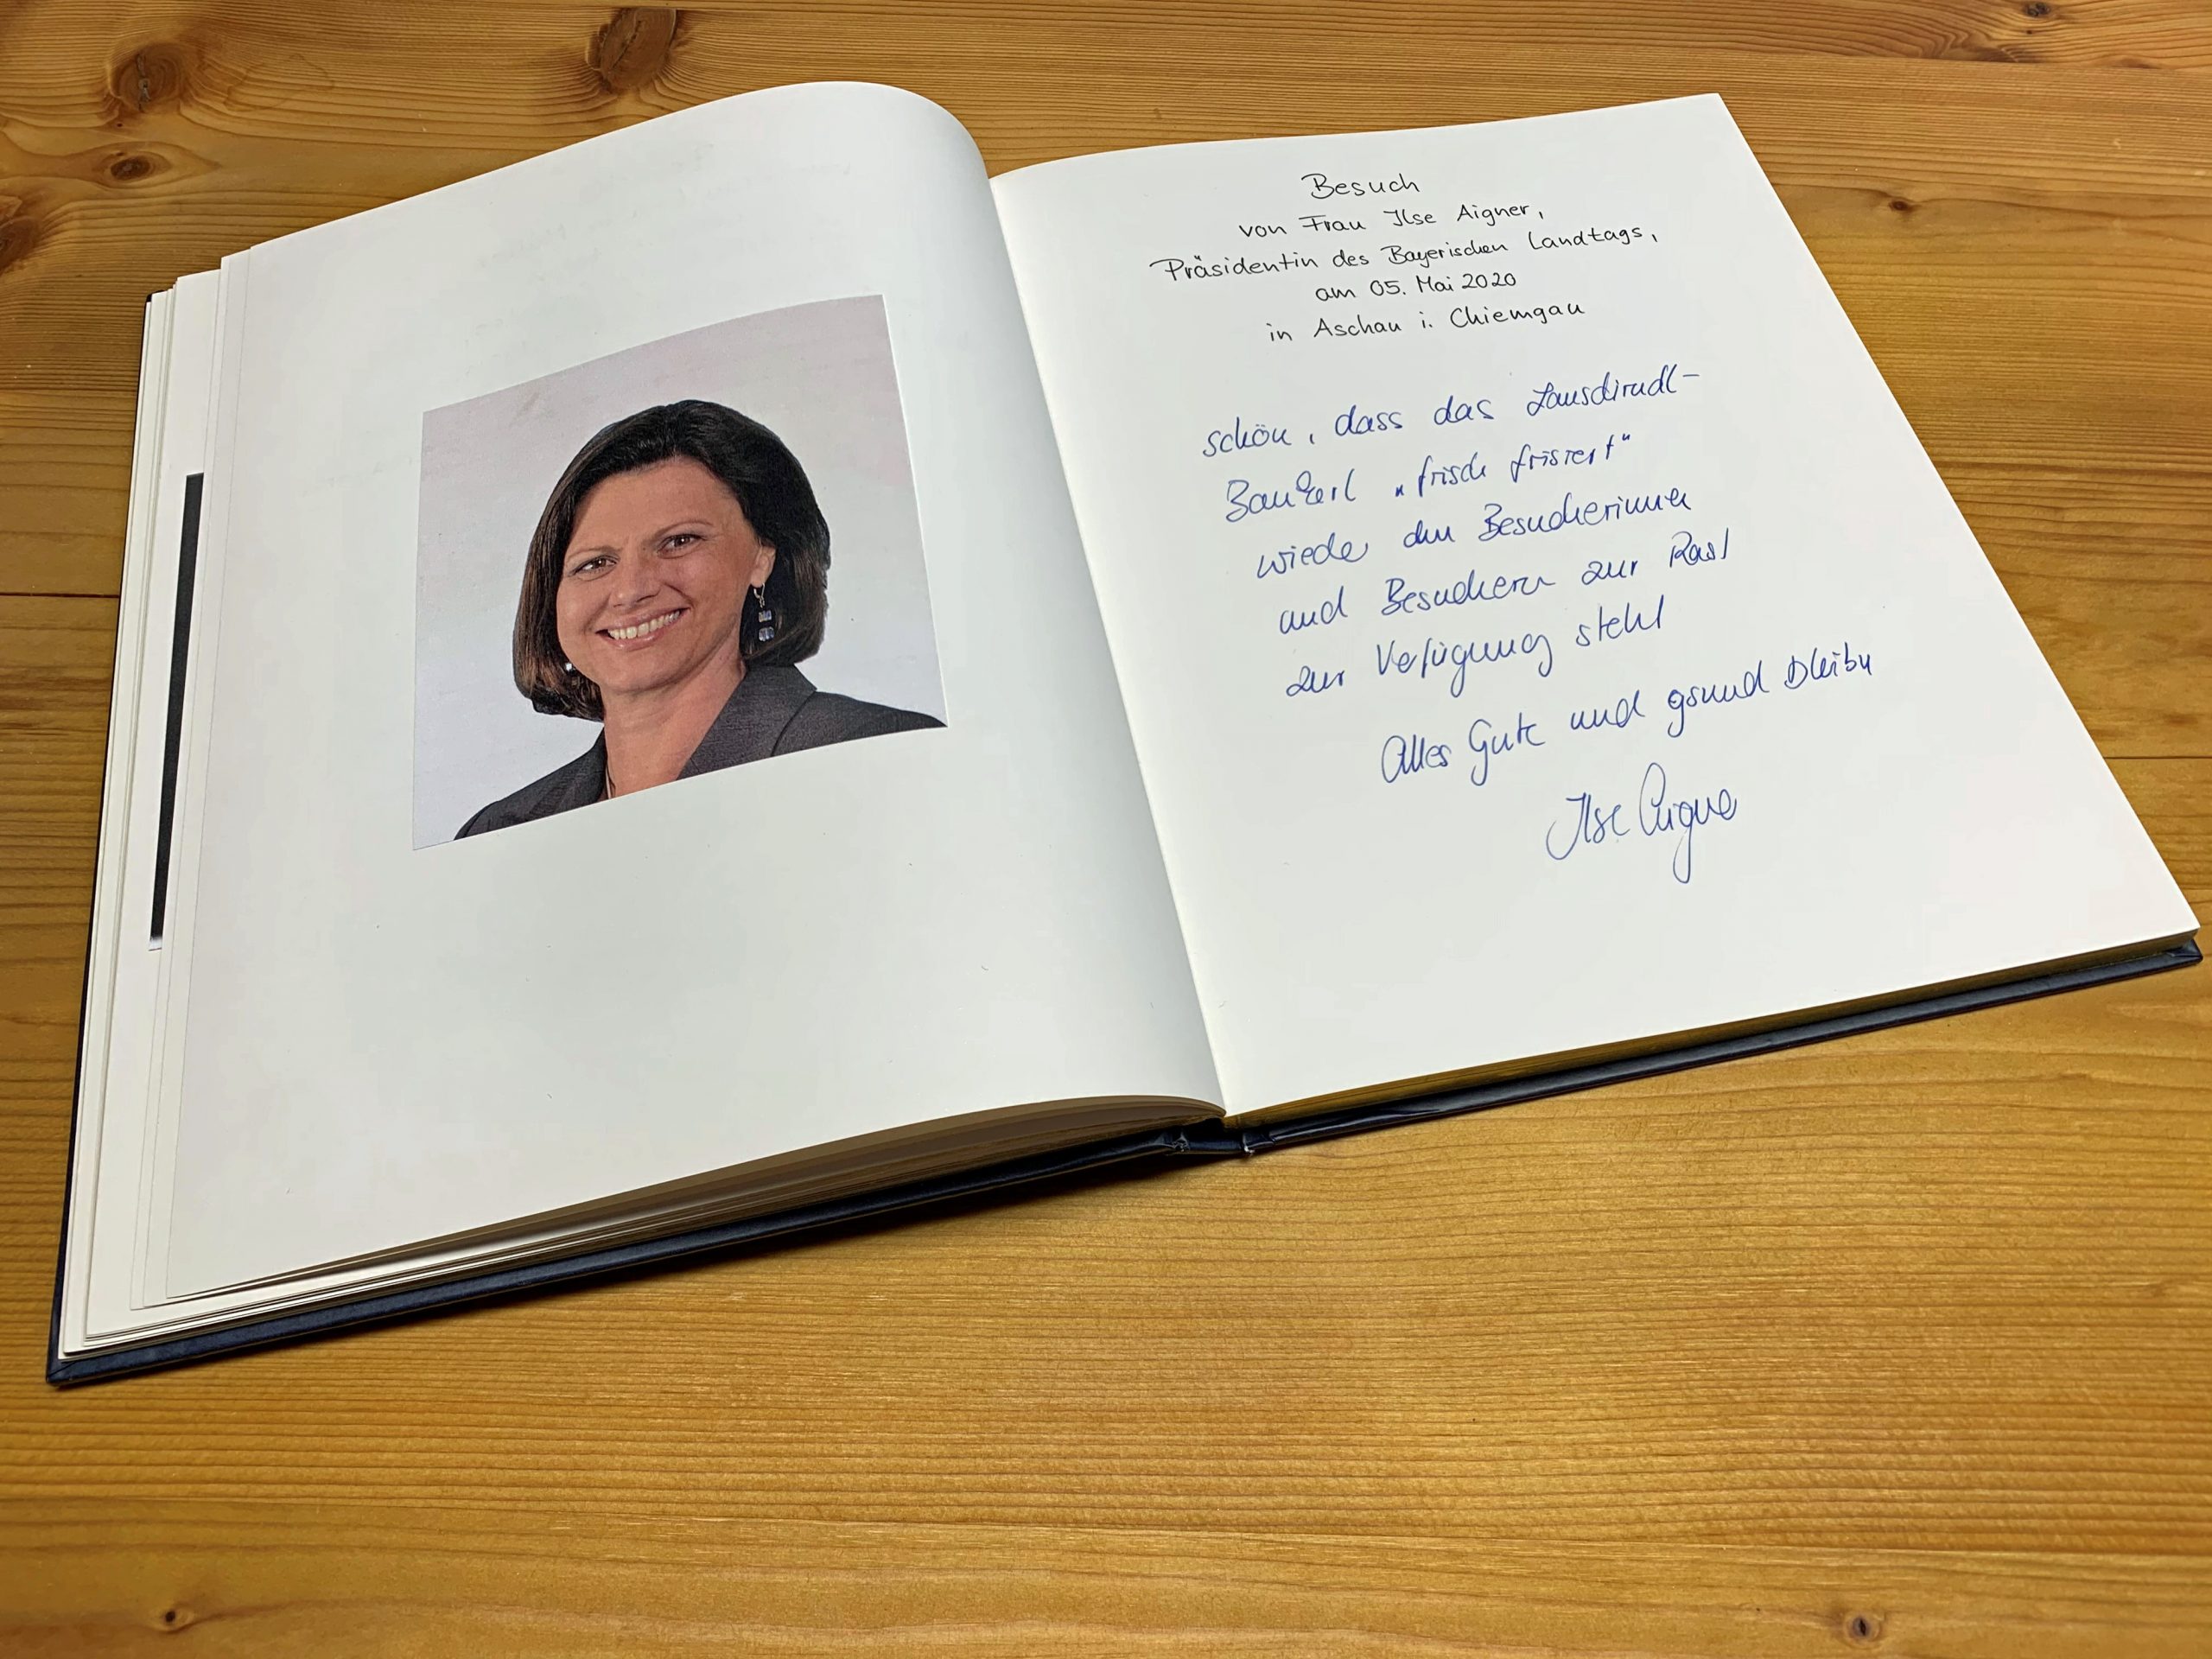 Besuch
von Frau Ilse Aigner,
Präsidentin des Bayerischen Landtags,
am 05. Mai 2020
in Aschau i. Chiemgau
schön, dass das Lausdirndl-
Bankerl „frisch frisiert"
wieder den Besucherinnen
und Besuchern zur Rast
zur Verfügung steht
Alles Gute und gsund bleibn
Ilse Aigner